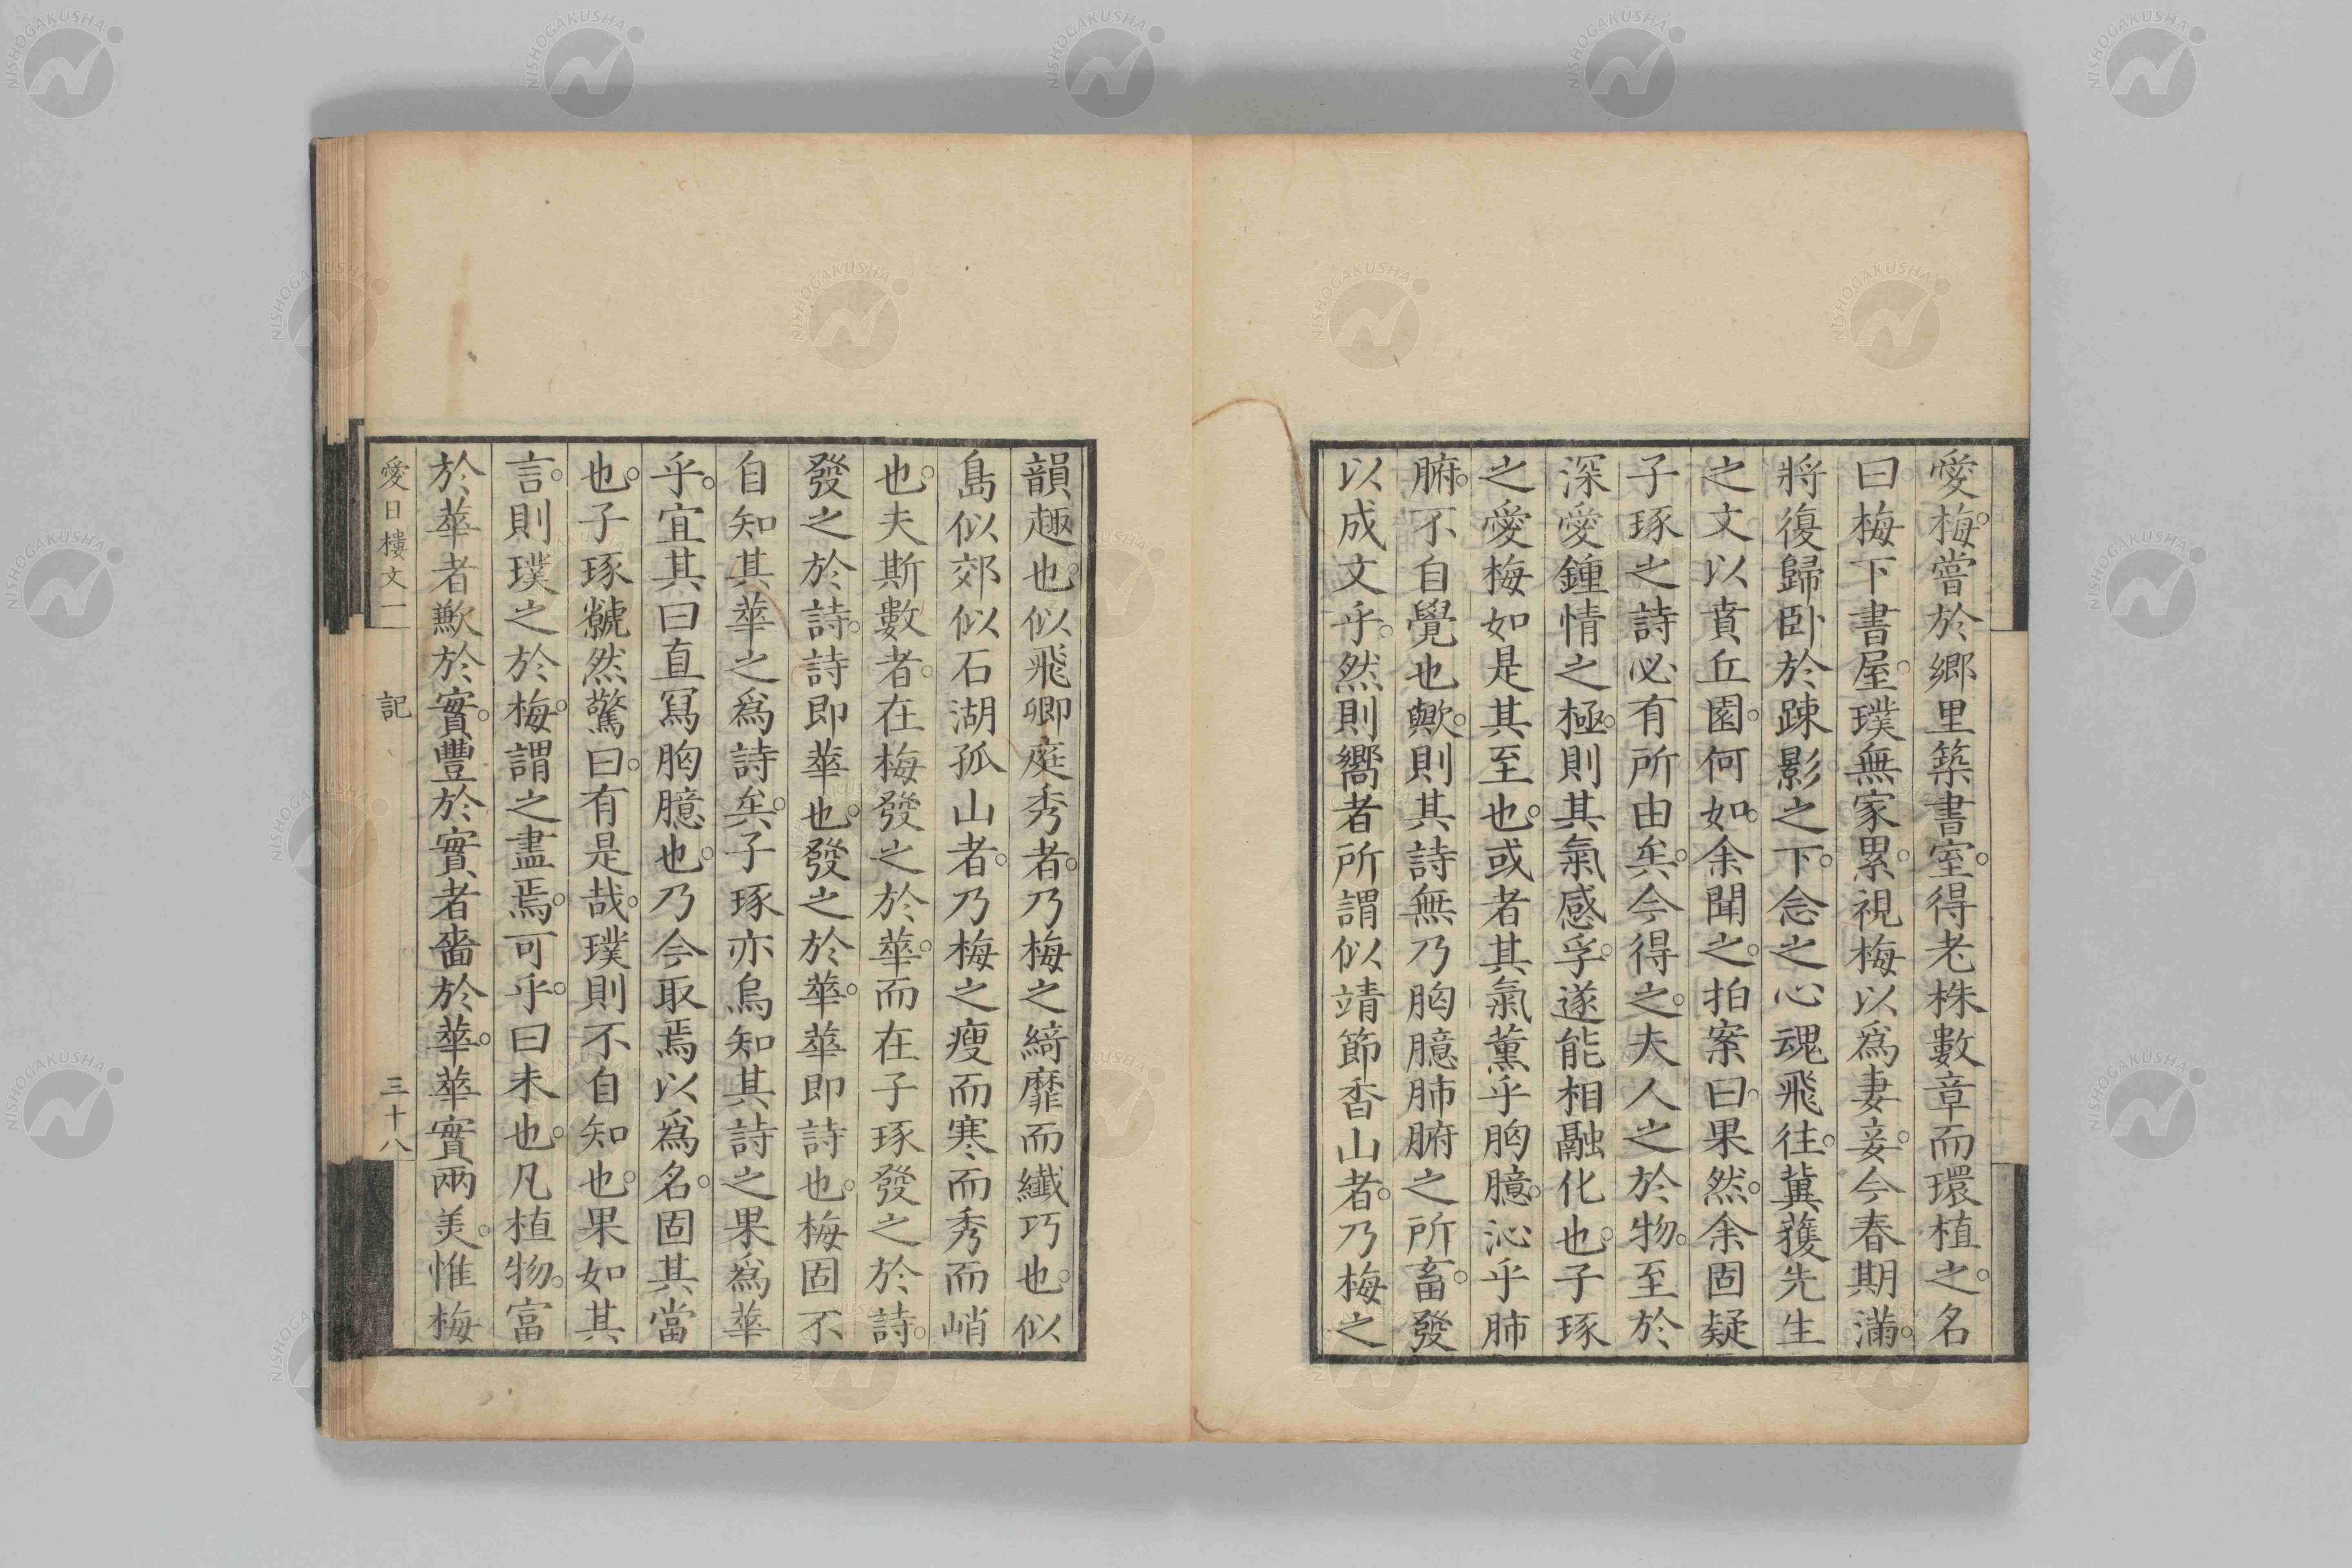 愛梅。嘗於鄉里築書室。得老株數章而環植之。名
曰梅下書屋。璞無家累。視梅以爲妻妾。今春期滿。
將復歸臥於踈影之下。念之心魂飛往。冀蒦先生
之文以賁丘園。何如。余聞之。拍案曰。果然。余固疑
子琢之詩必有所由矣。今得之。夫人之於物。至於
深愛鍾情之極。則其氣感孚。遂能相融化也。子琢
之愛梅如是其至也。或者其氣薰乎胸臆。沁乎肺
腑。不自覺也歟。則其詩無乃胸臆肺腑之所畜。發
以成文乎。然則嚮者所謂似靖節香山者。乃梅之
韻趣也。似飛卿庭秀者。乃梅之綺靡而纖巧也。似
島似郊似石湖孤山者。乃梅之瘦而寒而秀而峭
也。夫斯數者。在梅發之於華。而在子琢發之於詩。
發之於詩。詩即華也。發之於華。華即詩也。梅固不
自知其華之爲詩矣。子琢亦烏知其詩之果爲華
乎。宜其曰直寫胸臆也。乃今取焉以爲名。固其當
也。子琢虩然驚曰。有是哉。璞則不自知也。果如其
言。則璞之於梅。謂之盡焉。可乎。曰未也。凡植物。富
於華者歉於實。豐於實者嗇於華。華實兩美。惟梅
愛日樓文二 記 三十八
NISHOGAKUSHA